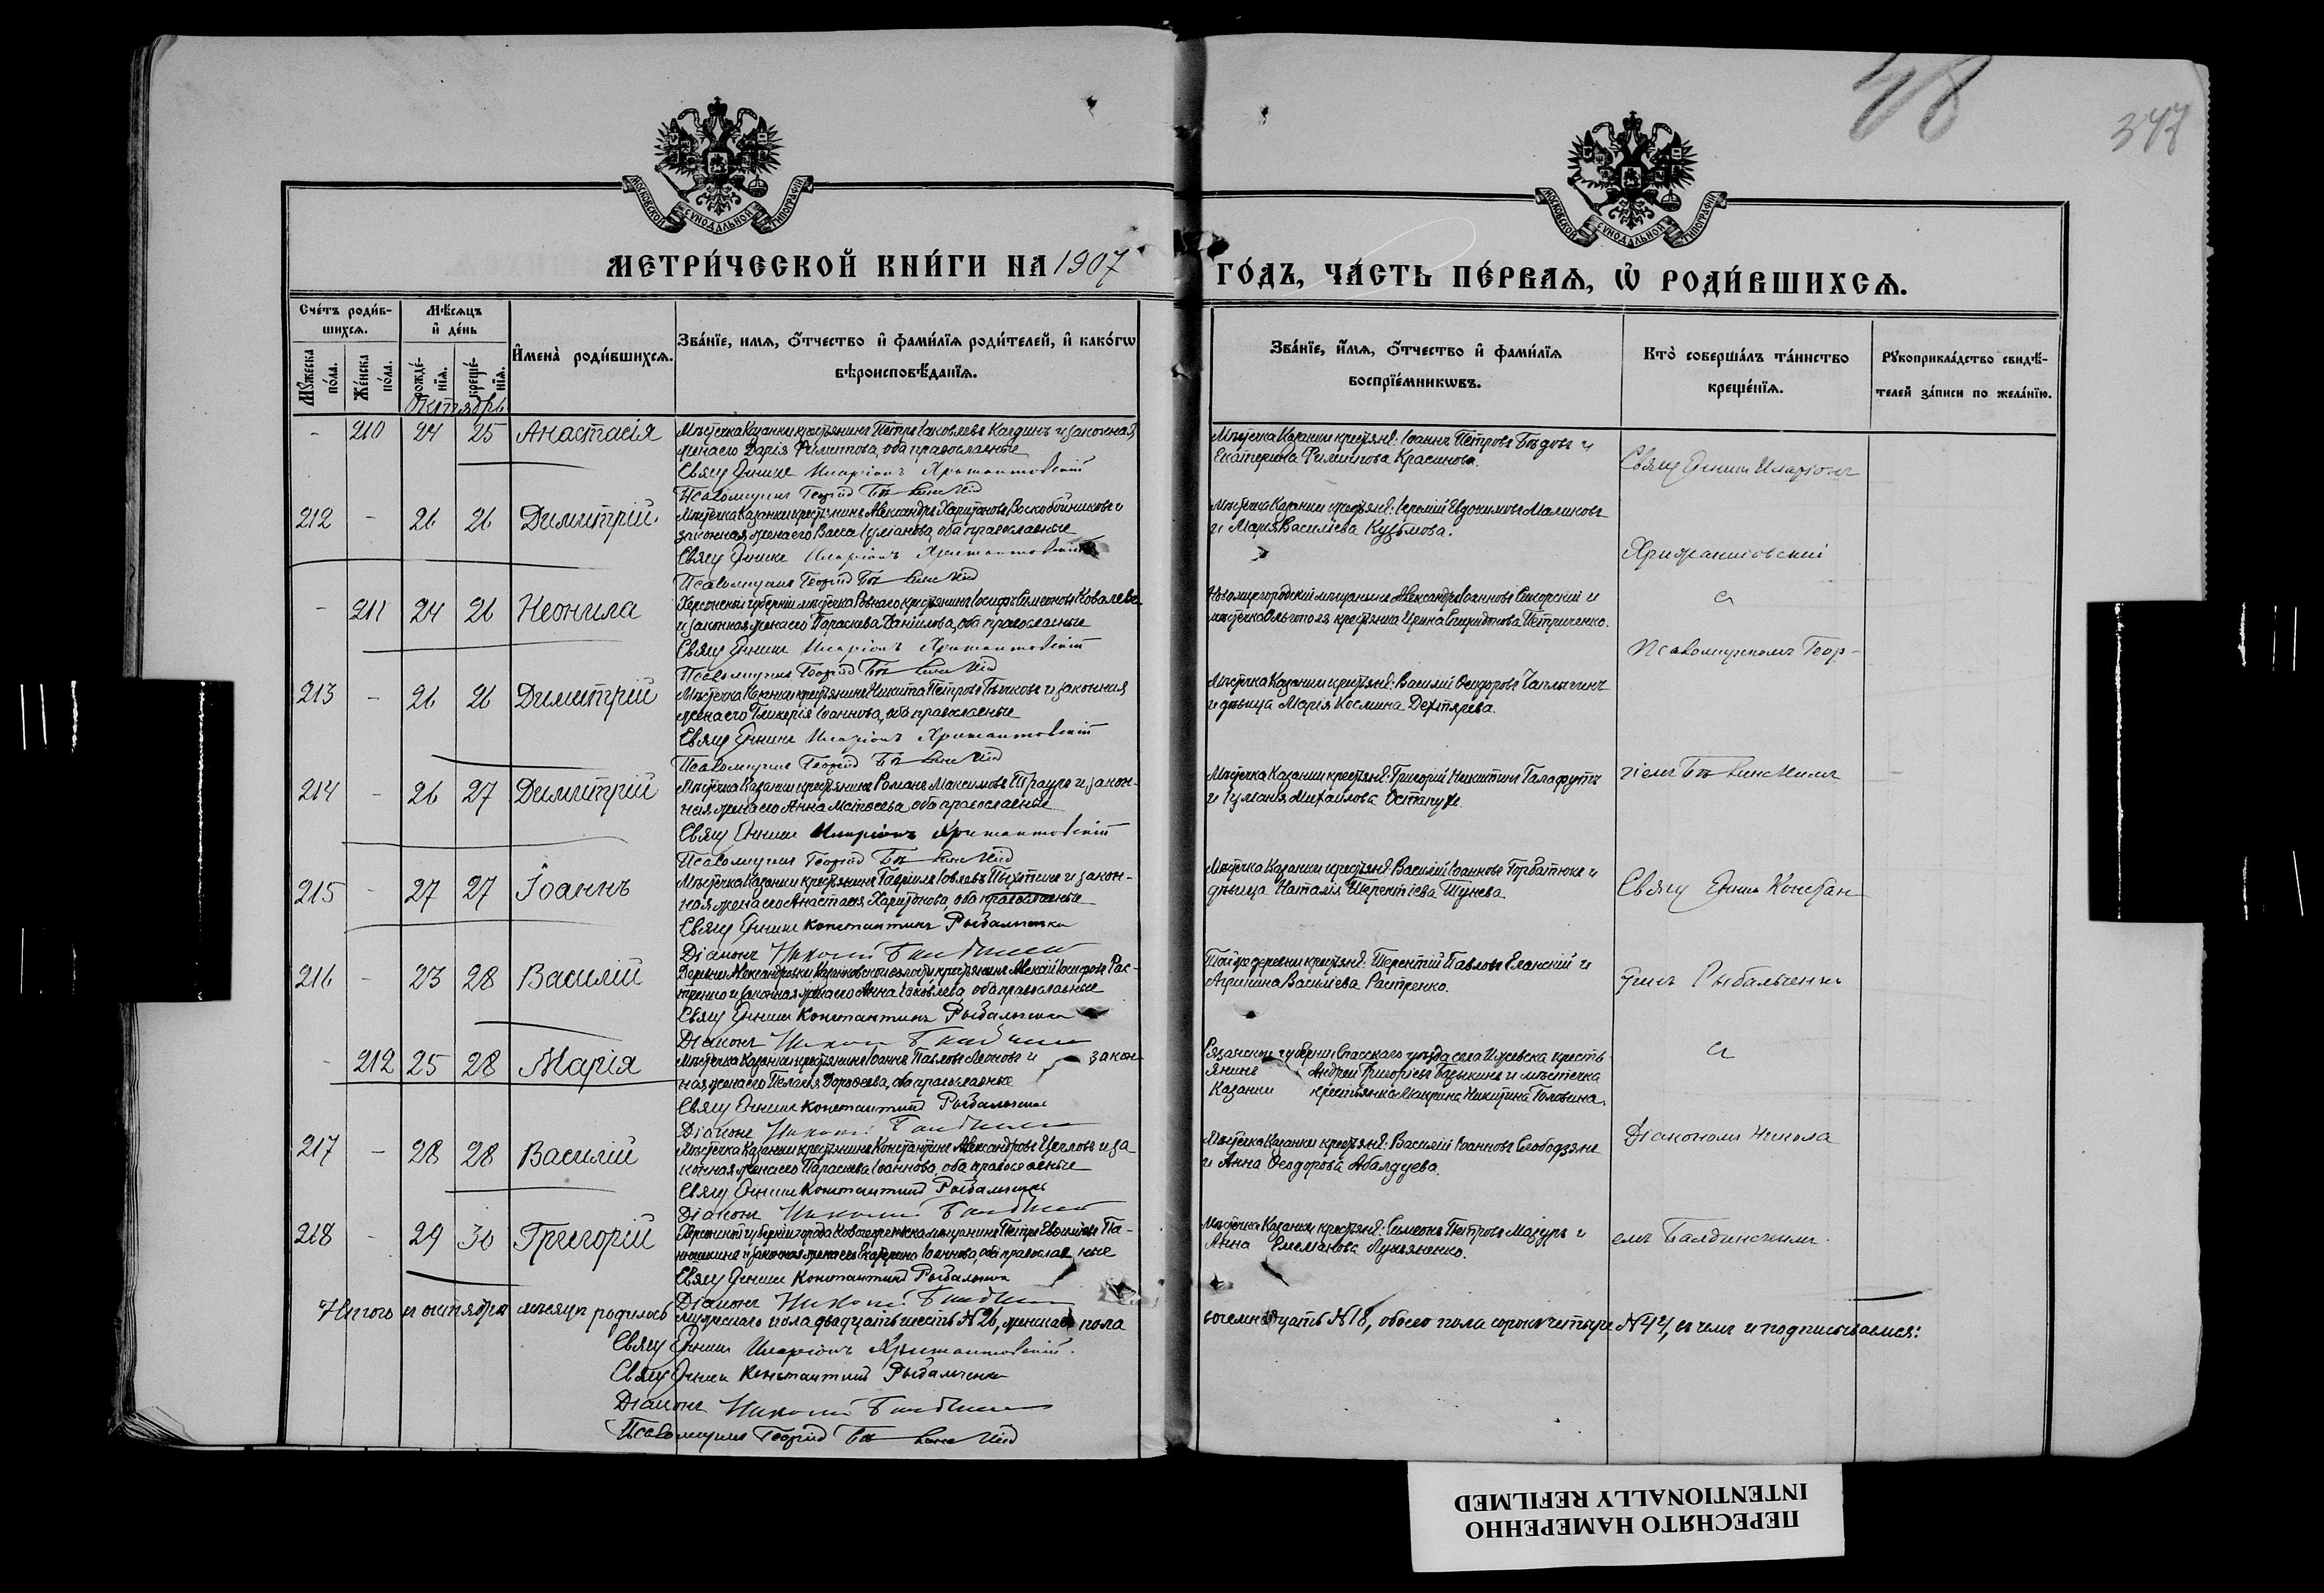 48
347
МОСКОВСКОЙ СУНОДАЛЬНОЙ ТИПОГРАФІИ
МОСКОВСКОЙ СУНОДАЛЬНОЙ ТИПОГРАФІИ
МЕТРИ́ЧЕСКОЙ КНИ́ГИ НА 1907 ГО́ДЪ, ЧА́СТЬ ПЕ́РВАѦ, Ѡ҆ РОДИ́ВШИХСѦ.
Сче́тъ роди́в-
шихсѧ.
Мꙋ́жеска по́ла.
Же́нска по́ла.
Мѣ́сѧцъ и҆ де́нь
рожде́-
нїѧ.
креще́-
нїѧ.
И҆мена̀ роди́вшихсѧ.
Зва́нїе, имѧ, ѻ҆́тчество и҆ фами́лїѧ роди́телей, и҆ како́гѡ
вѣроисповѣ́данїѧ.
Зва́нїе, и҆́мѧ, ѻ҆́тчество и҆ фами́лїѧ
воспрїе́мникѡвъ.
Кто̀ соверша́лъ та́инство
креще́нїѧ.
Рꙋкоприкла́дство свидѣ́-
телей за́писи по жела́нїю.
Октябрь
- 210 24 25 Анастасія
Мѣстечка Казанки крестьянинъ Петръ Іаковлевъ и законная
жена его Дарія Филиппова, оба православные
Свящ Иларіонъ
Псаломщикъ Георгій
Мѣстечка Казанки крестьяне: Іоаннъ Петровъ Бѣдовъ и
Екатерина Филиппова Красинова.
Свящ Иларіонъ
212 - 26 26 Димитрій
Мѣстечка Казанки крестьянинъ Александръ Харитоновъ Воскобойниковъ и
законная жена его Васса Іуліанова, оба православные
Свящ Иларіонъ
Псаломщикъ Георгій
Мѣстечка Казанки крестьяне: Іеремій Евдокимовъ Маликовъ
и Марія Василіева Кузьмова.
- 211 24 26 Неонила
Херсонской губерніи мѣстечка Ровнаго крестьянинъ Іосифъ Симеоновъ Ковалевъ
и законная жена его Параскева Даніилова, оба православные
Свящ Иларіонъ
Псаломщикъ Георгій
Новомиргородскій мѣщанинъ Александръ Іоанновъ Сикорскій и
мѣстечка крестьянка Ирина Спиридонова Петриченко.
съ
Псаломщикомъ Геор-
213 - 26 26 Димитрій
Мѣстечка Казанки крестьянинъ Никита Петровъ Бычковъ и законная
жена его Гликерія Іоаннова, оба православные
Свящ Иларіонъ
Псаломщикъ Георгій
Мѣстечка Казанки крестьяне: Василій Ѳеодоровъ Чаплыгинъ
и дѣвица Марія Космина Дехтярева.
214 - 26 27 Димитрій
Мѣстечка Казанки крестьянинъ Романъ Максимовъ и закон-
ная жена его Анна Матѳеева, оба православные
Свящ Иларіонъ
Псаломщикъ Георгій
Мѣстечка Казанки крестьяне: Григорій Никитинъ Галафутъ
и Михаилова
гіемъ
215 - 27 27 Іоаннъ
Мѣстечка Казанки крестьянинъ Гавріилъ Іовлевъ Пыхтинъ и закон-
ная жена его Анастасія Харитонова, оба православные
Свящ Константинъ Рыбальченко
Діаконъ Николай
Мѣстечка Казанки крестьяне: Василій Іоанновъ Горбатюкъ и
дѣвица Наталія Терентіева Шунева
Свящ Констан-
216 - 23 28 Василій
Деревни Александровки Казанковской волости крестьянинъ Алексій Іосифовъ Рас-
тренко и законная жена его Анна Іаковлева, оба православные
Свящ Константинъ Рыбальченко
Діаконъ Николай
Той же деревни крестьяне: Терентій Павловъ Еланскій и
Агрипина Василіева Растренко.
тинъ Рыбальченко
- 212 25 28 Марія
Мѣстечка Казанки крестьянинъ Іоаннъ Павловъ Леоновъ и закон-
ная жена его Пелагія Дороѳеева, оба православные
Свящ Константинъ Рыбальченко
Діаконъ Николай
Рязанской губерніи Спасскаго уѣзда села Ижевска кресть-
янинъ Андрей Григорьевъ и мѣстечка
Казанки крестьянка Макрина Никитина Головина.
съ
217 - 28 28 Василій
Мѣстечка Казанки крестьянинъ Константинъ Александровъ Щегловъ и за-
конная жена его Параскева Іоаннова, оба православные
Свящ Константинъ Рыбальченко
Діаконъ Николай
Мѣстечка Казанки крестьяне: Василій Іоанновъ Слободзянъ
и Анна Ѳеодорова Абалдуева.
Діакономъ Никола-
218 - 29 30 Григорій
Херсонской губерніи города мѣщанинъ Петръ Евѳиміевъ Па-
и законная жена его Екатерина Іоаннова, оба православные
Свящ Константинъ Рыбальченко
Діаконъ Николай
Мѣстечка Казанки крестьяне: Симеонъ Петровъ Мазуръ и
Анна Лукьяненко.
емъ
Итого въ октябрѣ мѣсяцѣ родилось мужескаго пола двадцать шесть №26, женскаго пола восемнадцать №18, обоего пола сорокъ четыре №44, въ чемъ и подписываемся:
Свящ Иларіонъ
Свящ Константинъ Рыбальченко
Діаконъ Николай
Псаломщикъ Георгій
ПЕРЕСНЯТО НАМЕРЕННО
INTENTIONALLY REFILMED